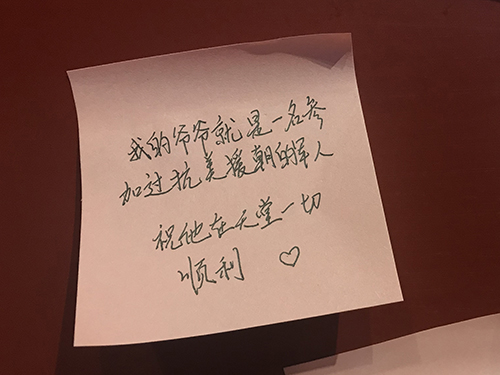 我的爷爷就是一名参
加过抗美援朝的军人
祝他在天堂一切
顺利 ♡